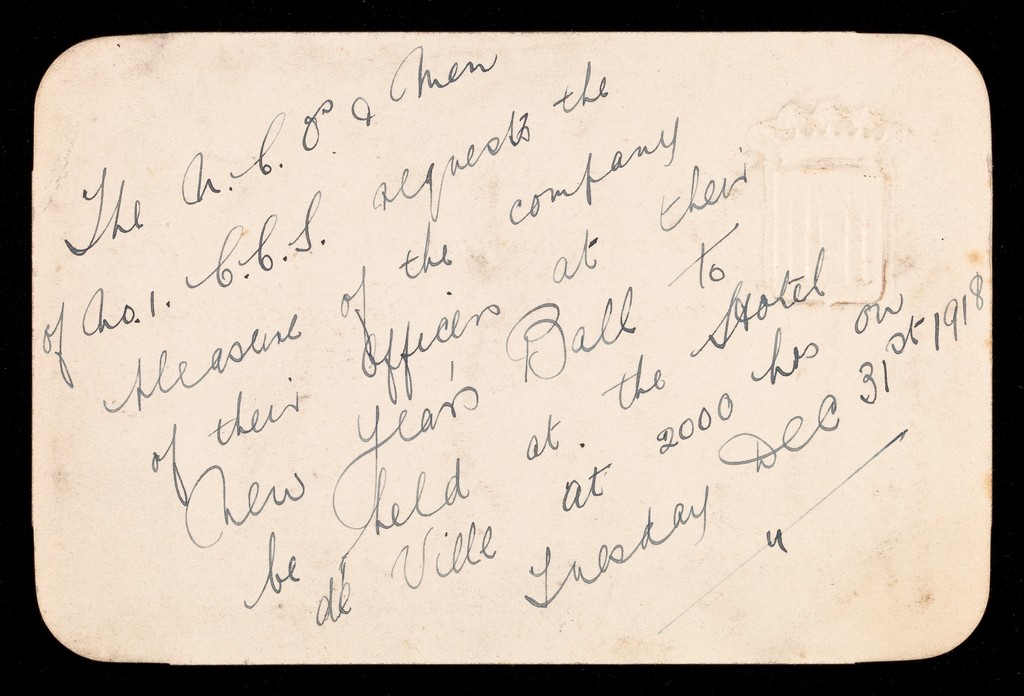 The N.C.O's & Men
of No.1. C.C.S. requests the
pleasure of the company
of their Officers at their
New Year's Ball to
be held at. the Hotel
de Ville at 2000 hrs on
Tuesday Dec 31st 1918
"